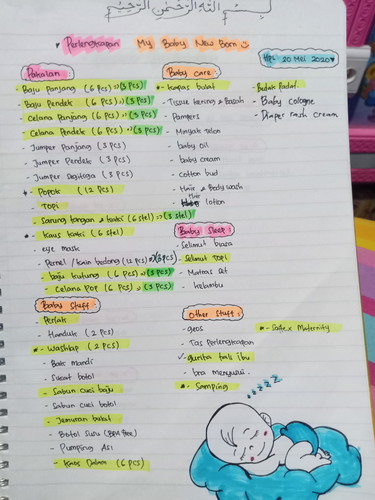 بسم الله الرحمن الرحيم
Perlengkapan My Baby New Born
HPL 20 Mei 2020
Pakaian :
- Baju Panjang (6 pcs) → (3 pcs)
- Baju Pendek (6 pcs) → (3 pcs)
- Celana Panjang (6 pcs) → (3 pcs)
- Celana Pendek (6 pcs) → (3 pcs)
- Jumper Panjang (3 pcs)
- Jumper Pendek (3 pcs)
- Jumper Segitiga (3 pcs)
- Popok (12 pcs)
- Topi
- Sarung tangan & kaki (6 stel) → (3 stel)
- Kaus kaki (6 stel)
- eye mask
- Pernel / kain bedong (12 pcs) → (3 pcs)
- baju kutung (6 pcs) → (3 pcs)
- Celana Pop (6 pcs) → (3 pcs)
Baby care :
- Kapas bulat
- Tissue kering & basah
- Pampers
- Minyak telon
- baby oil
- baby cream
- cotton bud
- Hair & Body wash
- Hair lotion
- Bedak Padat
- Baby cologne
- Diaper rash cream
Baby Sleep :
- Selimut biasa
- Selimut topi
- Matras set
- kelambu
Baby Stuff :
- Perlak
- Handuk (2 pcs)
- Washlap (2 pcs)
- Bak mandi
- Sikat botol
- Sabun cuci baju
- Sabun cuci botol
- Jemuran bulat
- Botol susu (BPA free)
- Pumping Asi
- Kaos Dalam (6 pcs)
Other Stuff :
- gros
- Tas Perlengkapan
- gurita tali ibu
- bra menyusui
- Samping
- Softex Maternity
zzzzz